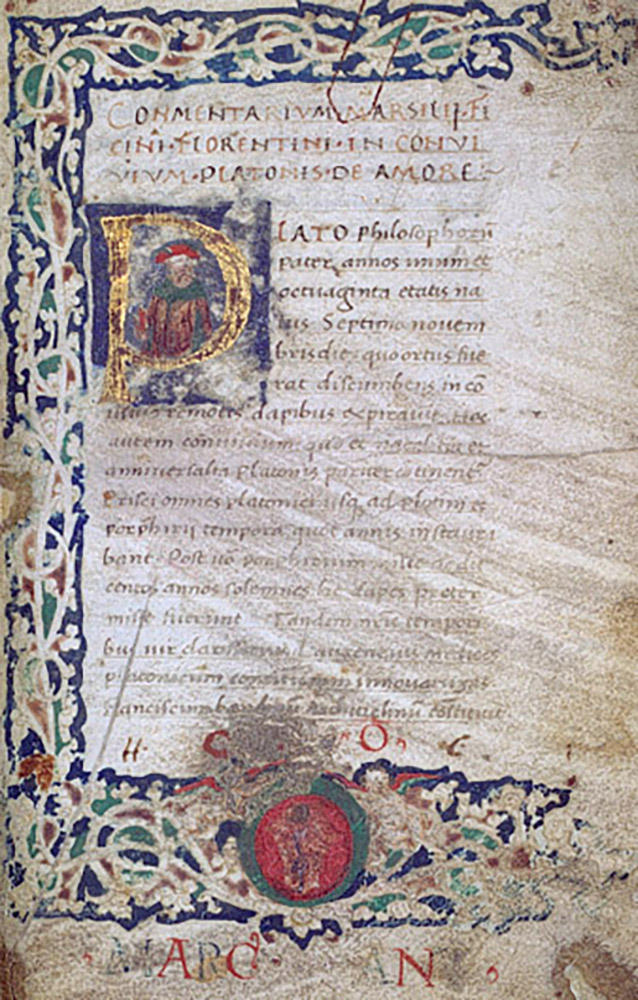 CONMENTARIVM MARSILII FI
CINI FLORENTINI IN CONVI
VIVM PLATONIS DE AMORE
PLATO philosophorū
pater, annos unum et
octuaginta etatis na
tus Septimo novem
bris die quo ortus fue
rat discumbens in cō
remotis dapibus expiravit. Hoc
autem convivium quo et
anniversaria Platonis pariter
Prisci omnes platonici usq ad plotini et
porphirii tempora quot annis instaura
bant. Post porphirium mille
centos annos solemnes he dapes preter
misse fuerunt Tandem tempori
bus vir Laurentius Medices
platonicum convivium
franciscum
H C O C
MARC AN